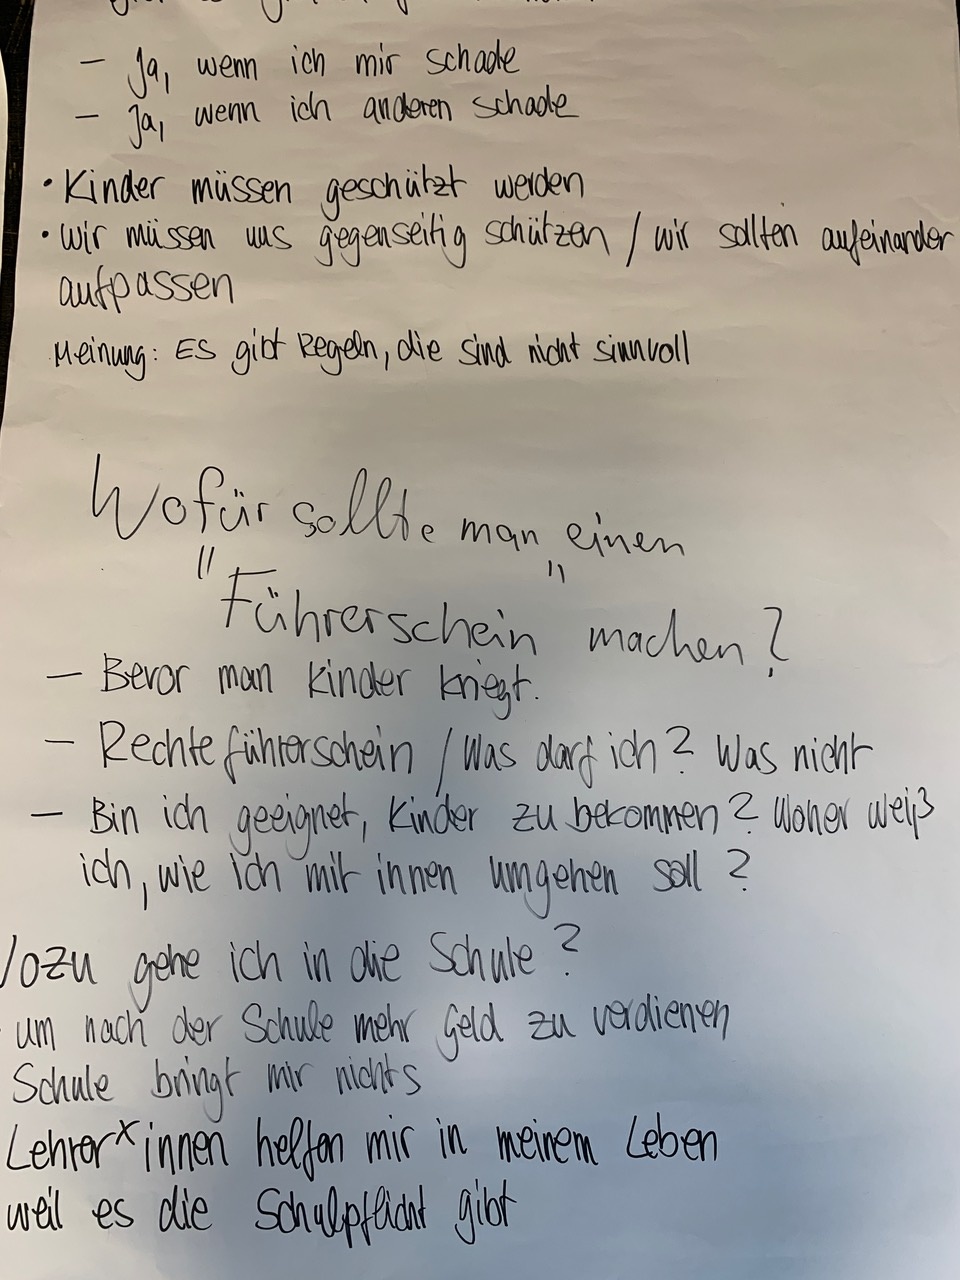 - Ja, wenn ich mir schade
- Ja, wenn ich anderen schade
• Kinder müssen geschützt werden
• Wir müssen uns gegenseitig schützen / wir sollten aufeinander
aufpassen
Meinung: ES gibt Regeln, die sind nicht sinnvoll
Wofür sollte man einen
"Führerschein" machen?
- Bevor man Kinder kriegt.
- Rechteführerschein / Was darf ich? Was nicht
- Bin ich geeignet, Kinder zu bekommen? Woher weiß
ich, wie ich mit innen umgehen soll?
Wozu gehe ich in die Schule?
um nach der Schule mehr Geld zu verdienen
Schule bringt mir nichts
Lehrer*innen helfen mir in meinem Leben
weil es die Schulpflicht gibt